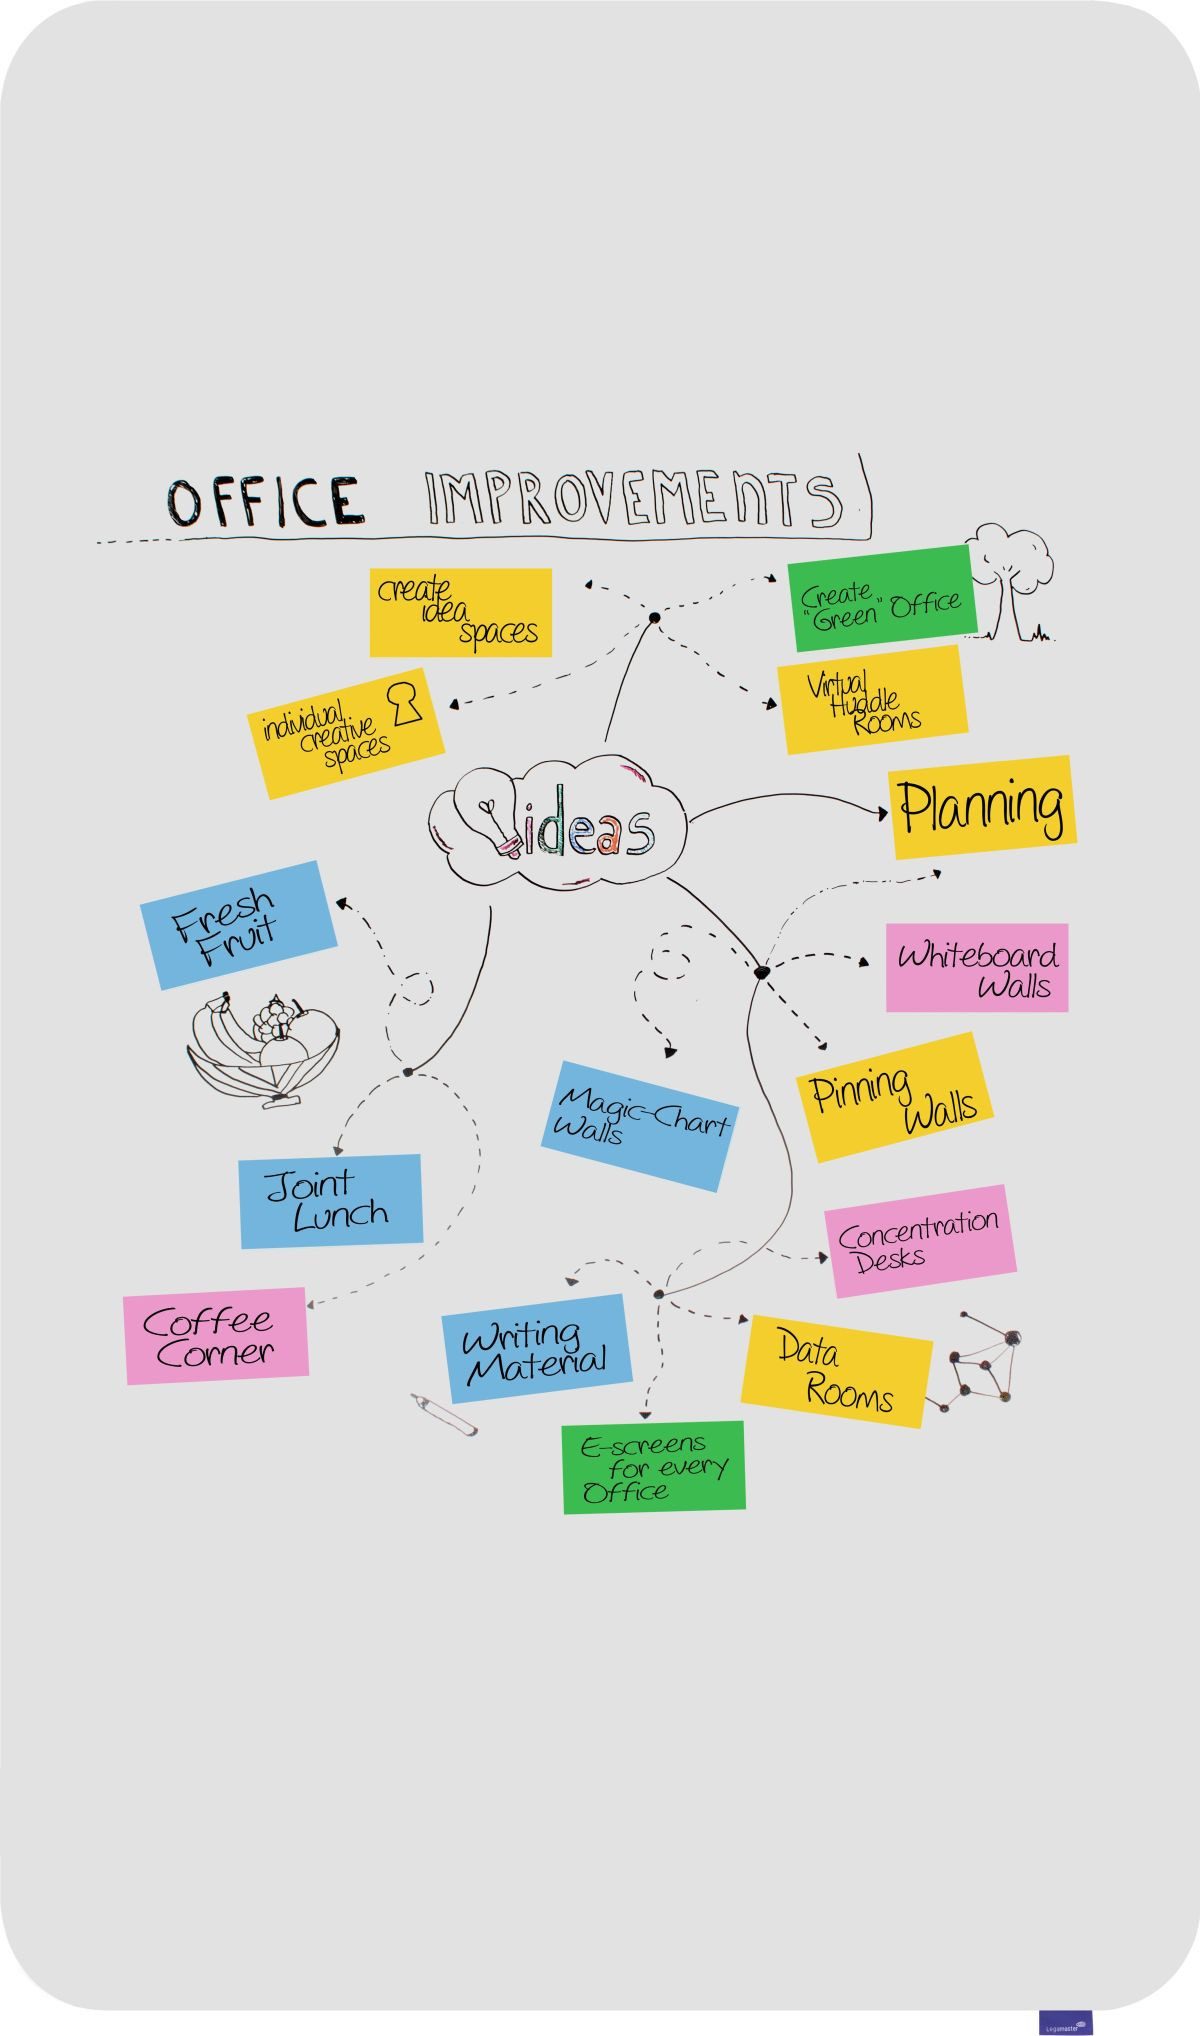 OFFICE IMPROVEMENTS
create
idea
spaces
Create
"Green" Office
individual
creative
spaces
Virtual
Huddle
Rooms
Planning
ideas
Fresh
Fruit
Whiteboard
Walls
Pinning
Walls
Magic-Chart
Walls
Joint
Lunch
Concentration
Desks
Coffee
Corner
Writing
Material
Data
Rooms
E-screens
for every
Office
Legamaster